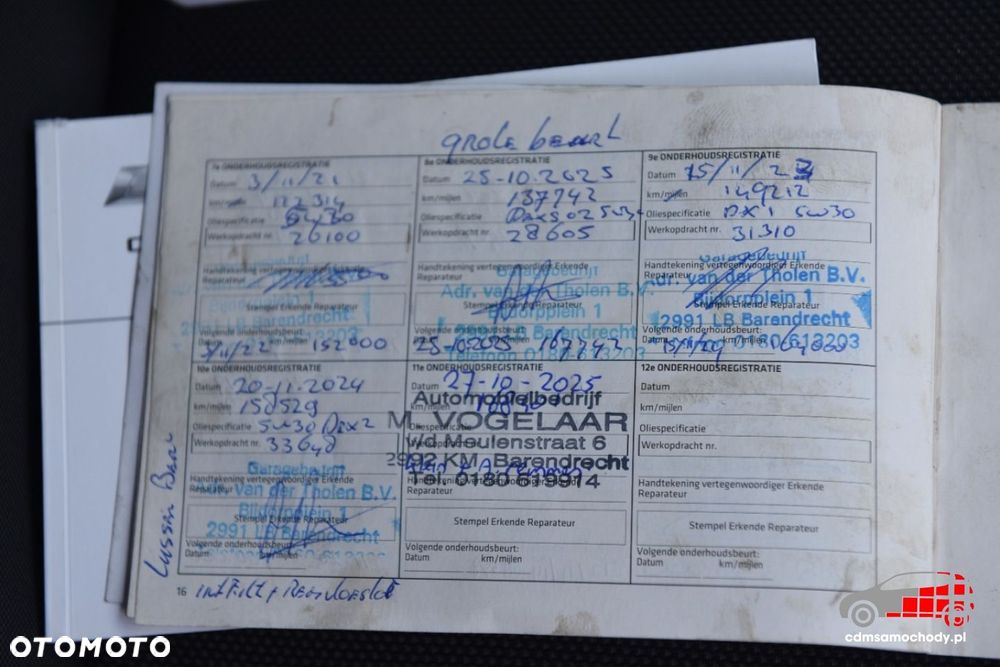 grote beurt
7e ONDERHOUDSREGISTRATIE
Datum 3/11/21
km/mijlen 122314
Oliespecificatie 5W30
Werkopdracht nr. 26100
Handtekening vertegenwoordiger Erkende
Reparateur
Stempel Erkende Reparateur
Barendrecht
Volgende onderhoudsbeurt:
Datum km/mijlen
3/11/22 152000
8e ONDERHOUDSREGISTRATIE
Datum 25-10.2025
km/mijlen 137742
Oliespecificatie
Werkopdracht nr. 28605
Garagebedrijf
Handtekening vertegenwoordiger Erkende
Reparateur
Adr. van der Tholen B.V.
Stempel Erkende Reparateur
Bijdorpplein 1
Barendrecht
Volgende onderhoudsbeurt:
Datum km/mijlen
Telefoon 0180 613203
167742
9e ONDERHOUDSREGISTRATIE
Datum 15/11/23
km/mijlen 149212
Oliespecificatie DX1 5W30
Werkopdracht nr. 31310
Garagebedrijf
Handtekening vertegenwoordiger Erkende
Reparateur
Adr. van der Tholen B.V.
Stempel Erkende Reparateur
Bijdorpplein 1
2991 LB Barendrecht
Volgende onderhoudsbeurt:
Datum km/mijlen
0180 613203
10e ONDERHOUDSREGISTRATIE
Datum 20-11-2024
km/mijlen 158529
Oliespecificatie 5W30 Dex2
Werkopdracht nr. 33648
Garagebedrijf
Handtekening vertegenwoordiger Erkende
Reparateur
Adr. van der Tholen B.V.
Bijdorpplein 1
Stempel Erkende Reparateur
2991 LB Barendrecht
Volgende onderhoudsbeurt:
Datum km/mijlen
11e ONDERHOUDSREGISTRATIE
Datum 27-10-2025
km/mijlen
Automobielbedrijf
M. VOGELAAR
Oliespecificatie
v/d Meulenstraat 6
Werkopdracht nr.
2992 KM Barendrecht
Handtekening vertegenwoordiger Erkende
Reparateur
Stempel Erkende Reparateur
Volgende onderhoudsbeurt:
Datum km/mijlen
12e ONDERHOUDSREGISTRATIE
Datum
km/mijlen
Oliespecificatie
Werkopdracht nr.
Handtekening vertegenwoordiger Erkende
Reparateur
Stempel Erkende Reparateur
Volgende onderhoudsbeurt:
Datum km/mijlen
16
OTOMOTO
cdmsamochody.pl